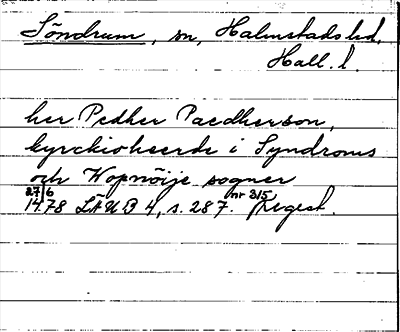 Söndrum, sn, Halmstads hd,
Hall. l.
her Pedher Paedherson,
kyrckioheerde i Syndroms
och Wopnöije sogner
27/6 1478 LÄUB 4, s. 287. nr 315 Regest.